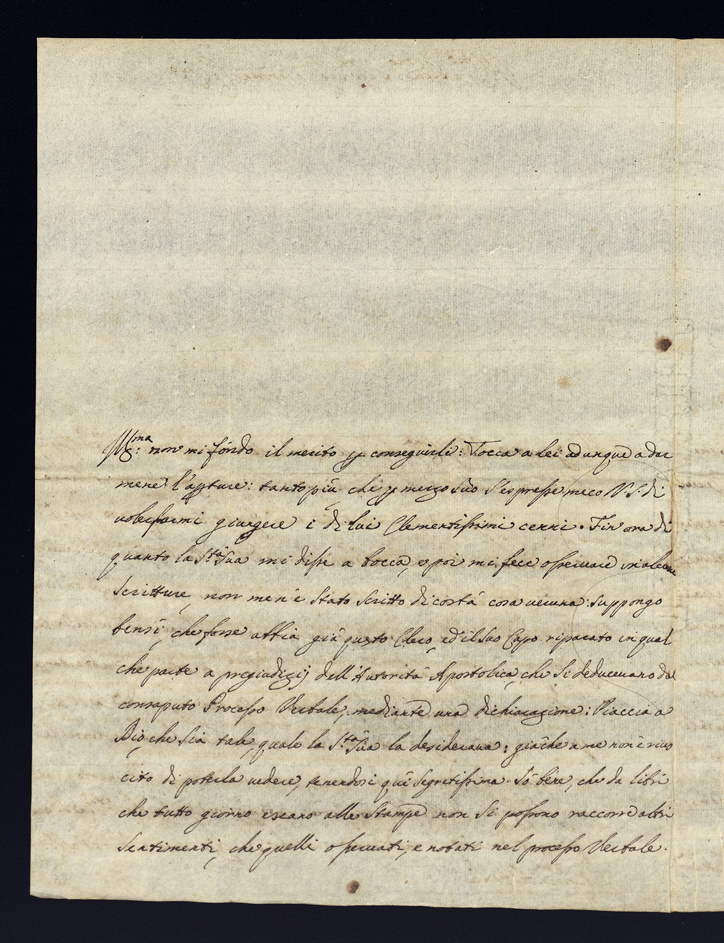 Ill.ma: non mi fondo il merito p conseguirli: Tocca a lei adunque a dar
mene l'apture: tanto più che p mezzo suo s'espresse meco N. S. di
volersarmi giungere i di lui Clementissimi cenni. Fin ora di
quanto la S.tà Sua mi disse a bocca, e poi mi fece osservare in alcune
scritture, non men'è stato scritto di costà cosa veruna: suppongo
bensì, che forse abbia già questo Clero, ed il suo Capo riparato in qual
che parte a pregiudizij dell'Autorità Apostolica, che si deducevano dal
consaputo Processo Verbale, mediante una dichiarazione: Piaccia a
Dio, che sia tale, quale la S.tà Sua la desiderava: giache a me non è rius
cito di poterla vedere, tenendosi quì segretissima. Sò bene, che da libri
che tutto giorno escano alle Stampe non si possono raccorre altri
sentimenti, che quelli osservati, e notati nel processo Verbale.